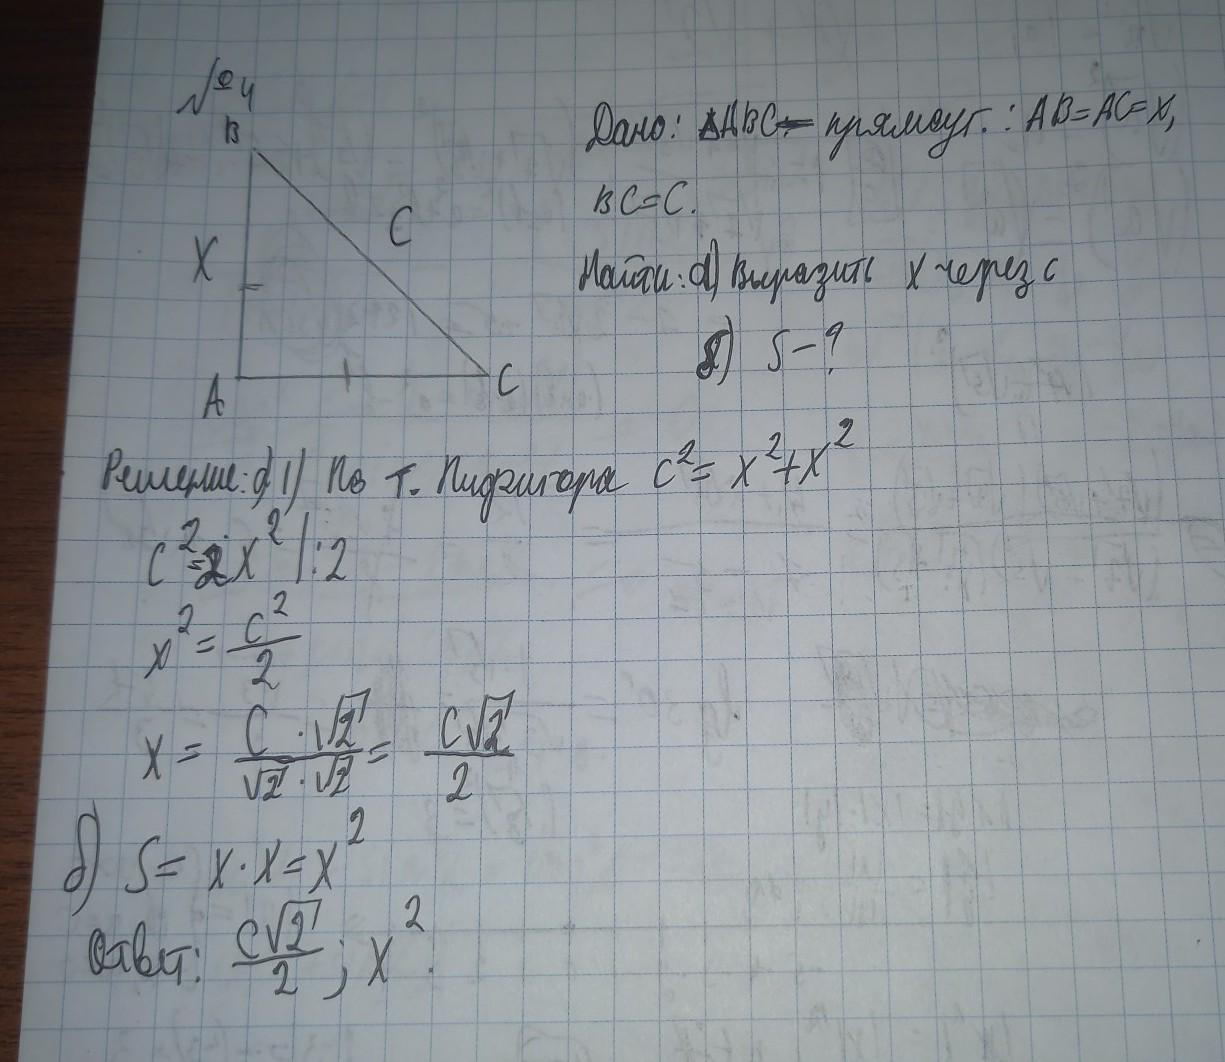 №4
B
Дано: ΔABC - прямоуг.: AB=AC=X,
BC=C.
C
X
Найти: а) Выразить x через c
б) S-?
A
C
Решение: а) 1) По т. Пифагора c²= x²+x²
c²=2x² |:2
x² = c²/2
x = C·√2/√2·√2 = C√2/2
б) S= x·x=x²
Ответ: C√2/2; x².